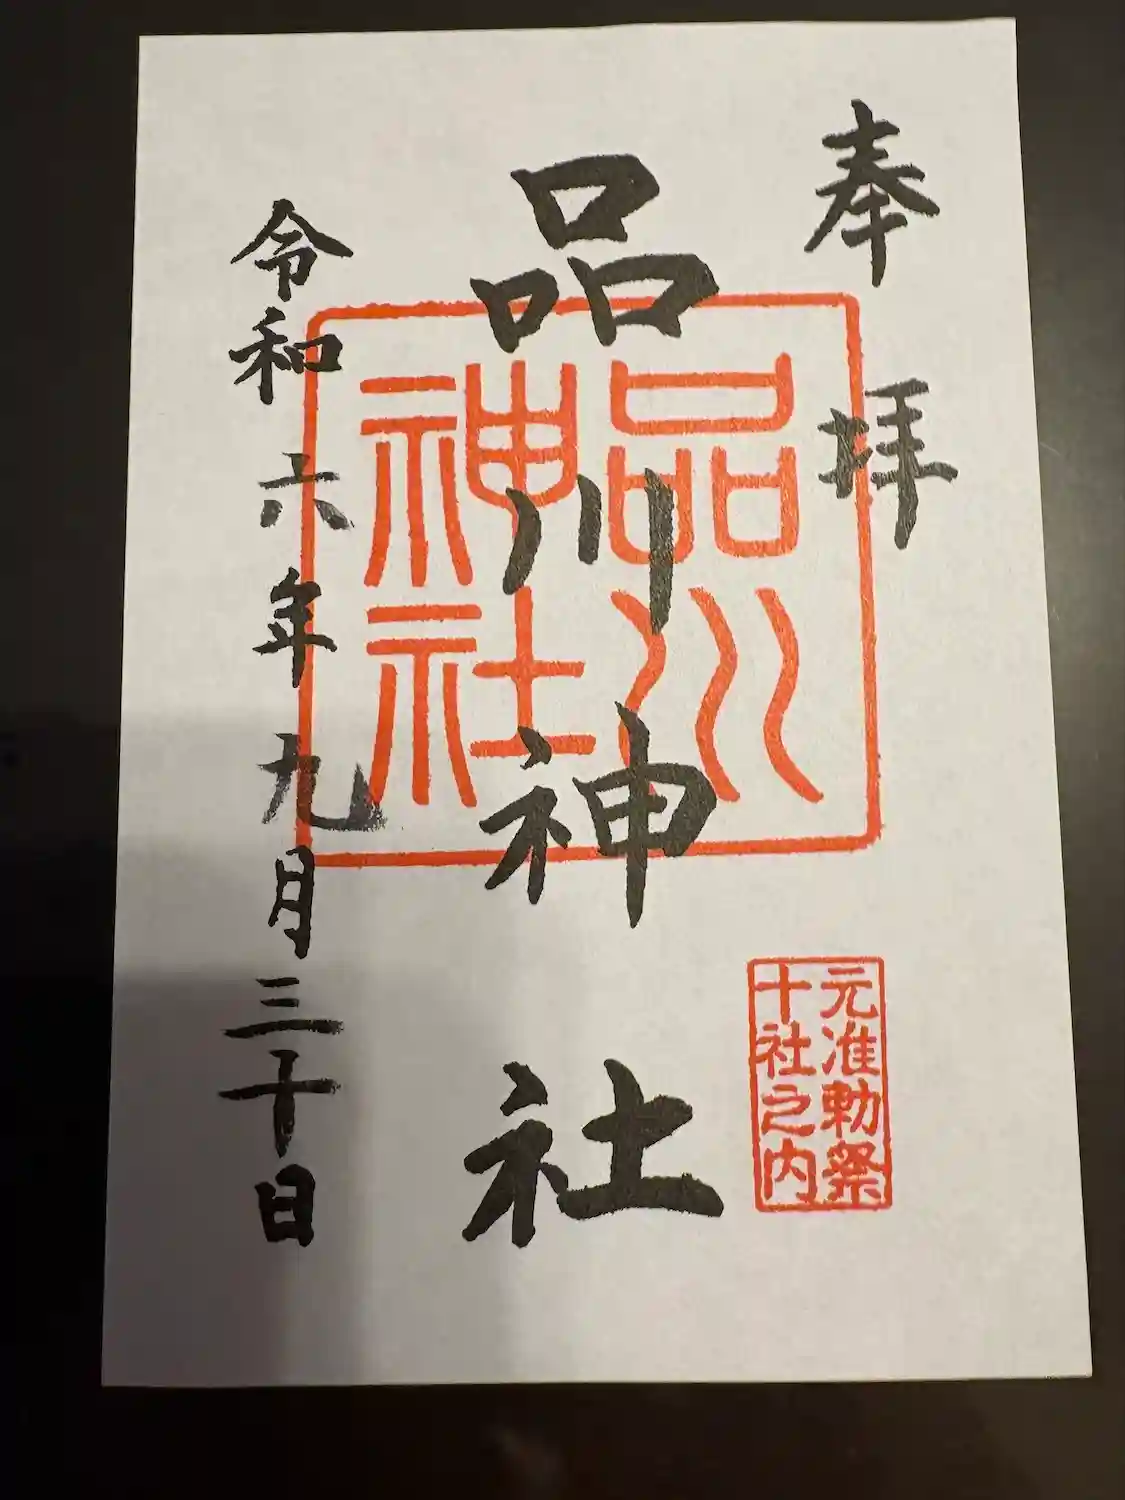 奉拝
品川神社
品川
神社
元准勅祭
十社之内
令和六年九月三十日